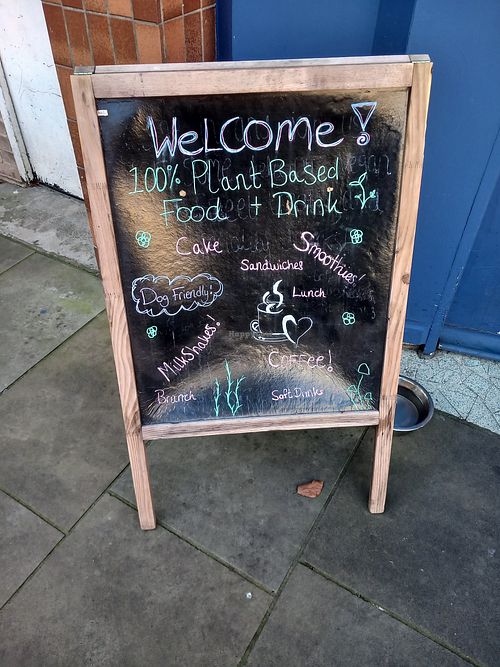 WeLCOme!
100% Plant Based
Food + Drink
Cake
Smoothies!
Sandwiches
Dog Friendly!
Lunch
MilkShakes!
Coffee!
Brunch
Soft Drinks